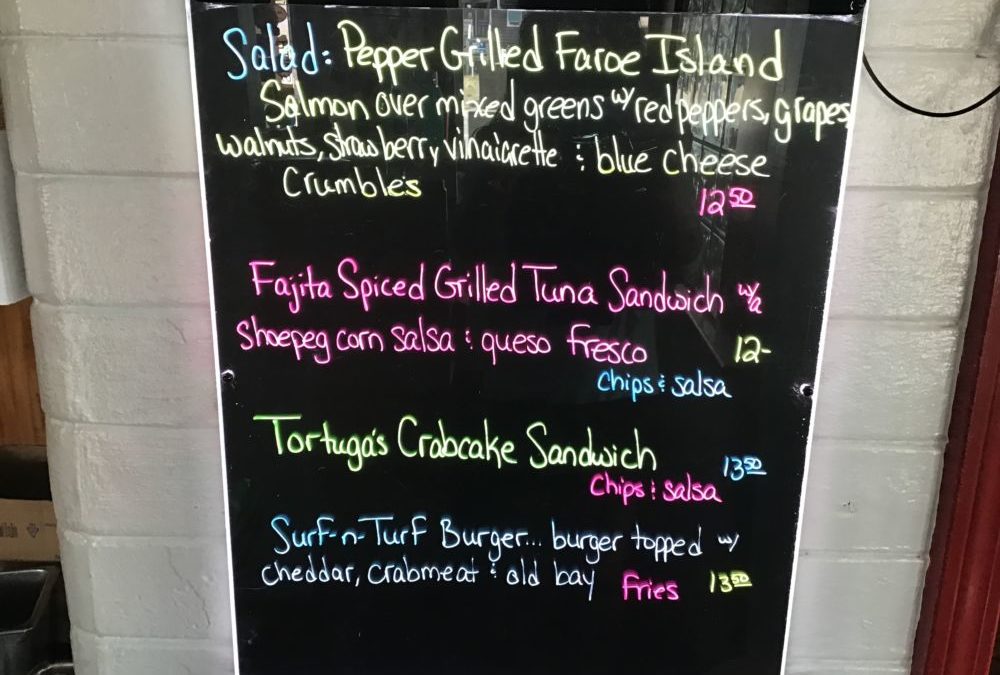 Salad: Pepper Grilled Faroe Island
Salmon over mixed greens w/ red peppers, grapes,
walnuts, strawberry vinaigrette & blue cheese
Crumbles
12 50
Fajita Spiced Grilled Tuna Sandwich w/a
Shoepeg corn salsa & queso fresco 12-
Chips & salsa
Tortuga's Crabcake Sandwich 13 50
Chips & salsa
Surf-n-Turf Burger... burger topped w/
cheddar, crabmeat & old bay Fries 13 50